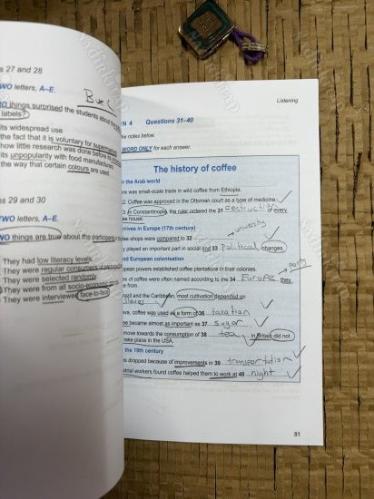 s 27 and 28
TWO letters, A–E.
things surprised the students about
labels?
B
its widespread use
the fact that it is voluntary for supermarkets
how little research was done before its
its unpopularity with food manufacturers
the way that certain colours are used
ns 29 and 30
TWO letters, A–E.
TWO things are true about the participants
They had low literacy levels.
They were regular consumers of
They were selected randomly
They were from all socio-economic
They were interviewed face-to-face
Listening
N 4 Questions 31–40
the notes below.
WORD ONLY for each answer.
The history of coffee
the Arab world
was small-scale trade in wild coffee from Ethiopia.
Coffee was approved in the Ottoman court as a type of medicine
In Constantinople, the ruler ordered the 31 destruction of every
house.
arrives in Europe (17th century)
shops were compared to 32
university
played an important part in social and 33 political changes.
and European colonisation
European powers established coffee plantations in their colonies.
of coffee were often named according to the 34 Europe they
from.
port
and the Caribbean, most cultivation depended on
Java, coffee was used as a form of 36 taxation
became almost as important as 37 sugar
move towards the consumption of 38 tea in Britain did not
take place in the USA.
the 19th century
dropped because of improvements in 39 transportation
industrial workers found coffee helped them to work at 40 night
81